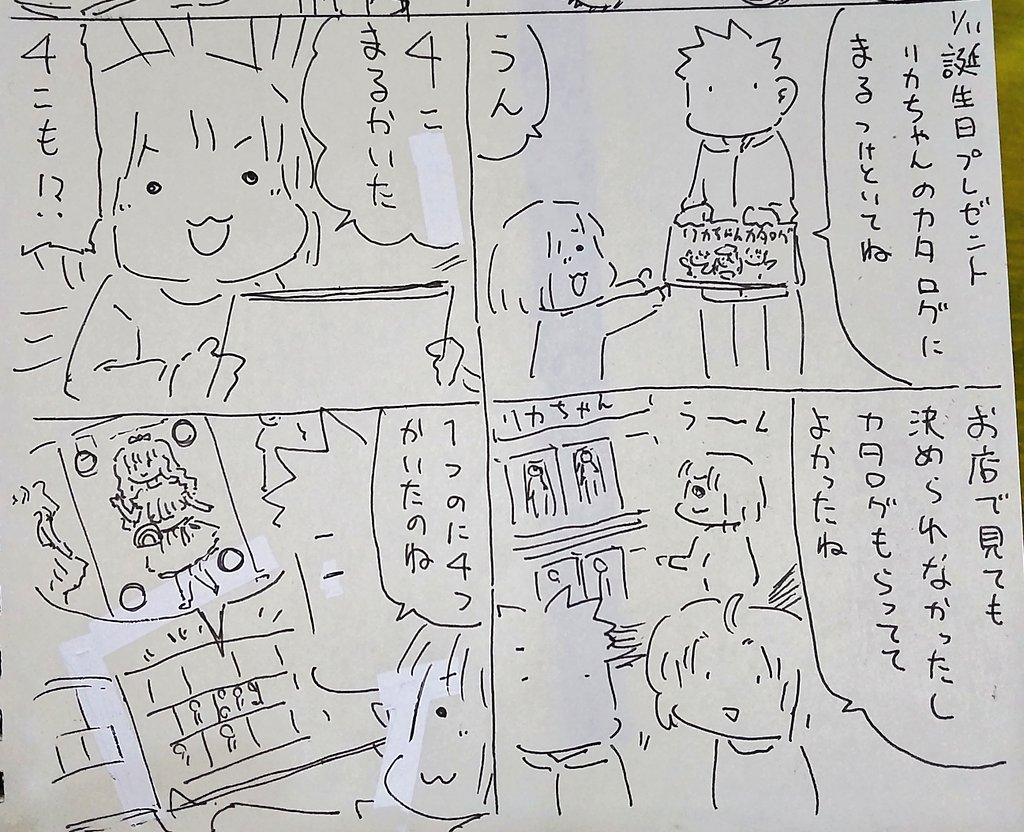 1/11
誕生日プレゼント
リカちゃんのカタログに
まるつけといてね
リカちゃんカタログ
うん
お店で見ても
決められなかったし
カタログもらってて
よかったね
うーん
リカちゃん
4こ
まるかいた
4こも!?
1つのに4つ
かいたのね